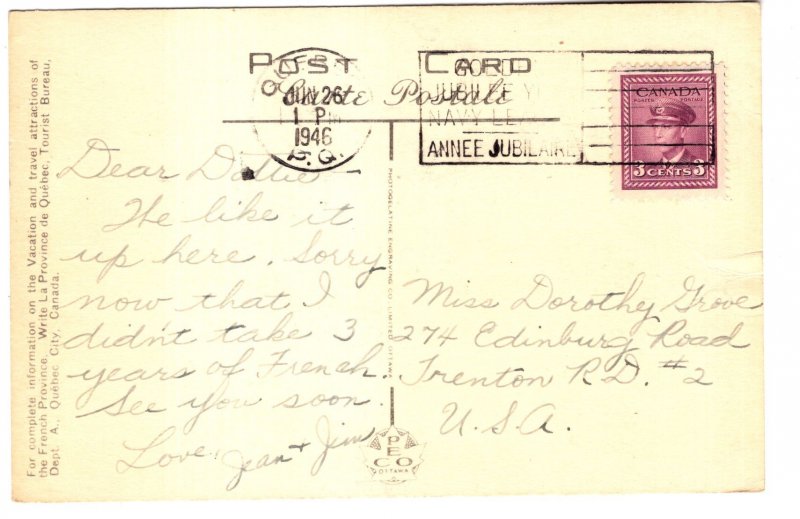 For complete information on the Vacation and travel attractions of
the French Province. Write La Province de Québec, Tourist Bureau,
Dept. A., Québec City, Canada.
POST CARD
Carte Postale
JUN 26
1 PM
1946
P.Q.
GOLD
JUBILEE
NAVY LEA
ANNEE JUBILAIRE
CANADA
POSTES POSTAGE
3 CENTS 3
Dear Dottie -
We like it
up here. Sorry
now that I
didn't take 3
years of French.
See you soon.
Love,
Jean + Jim
PHOTOGELATINE ENGRAVING CO. LIMITED OTTAWA
Miss Dorothy Grove
274 Edinburg Road
Trenton R.D. #2
U.S.A.
PECO
OTTAWA